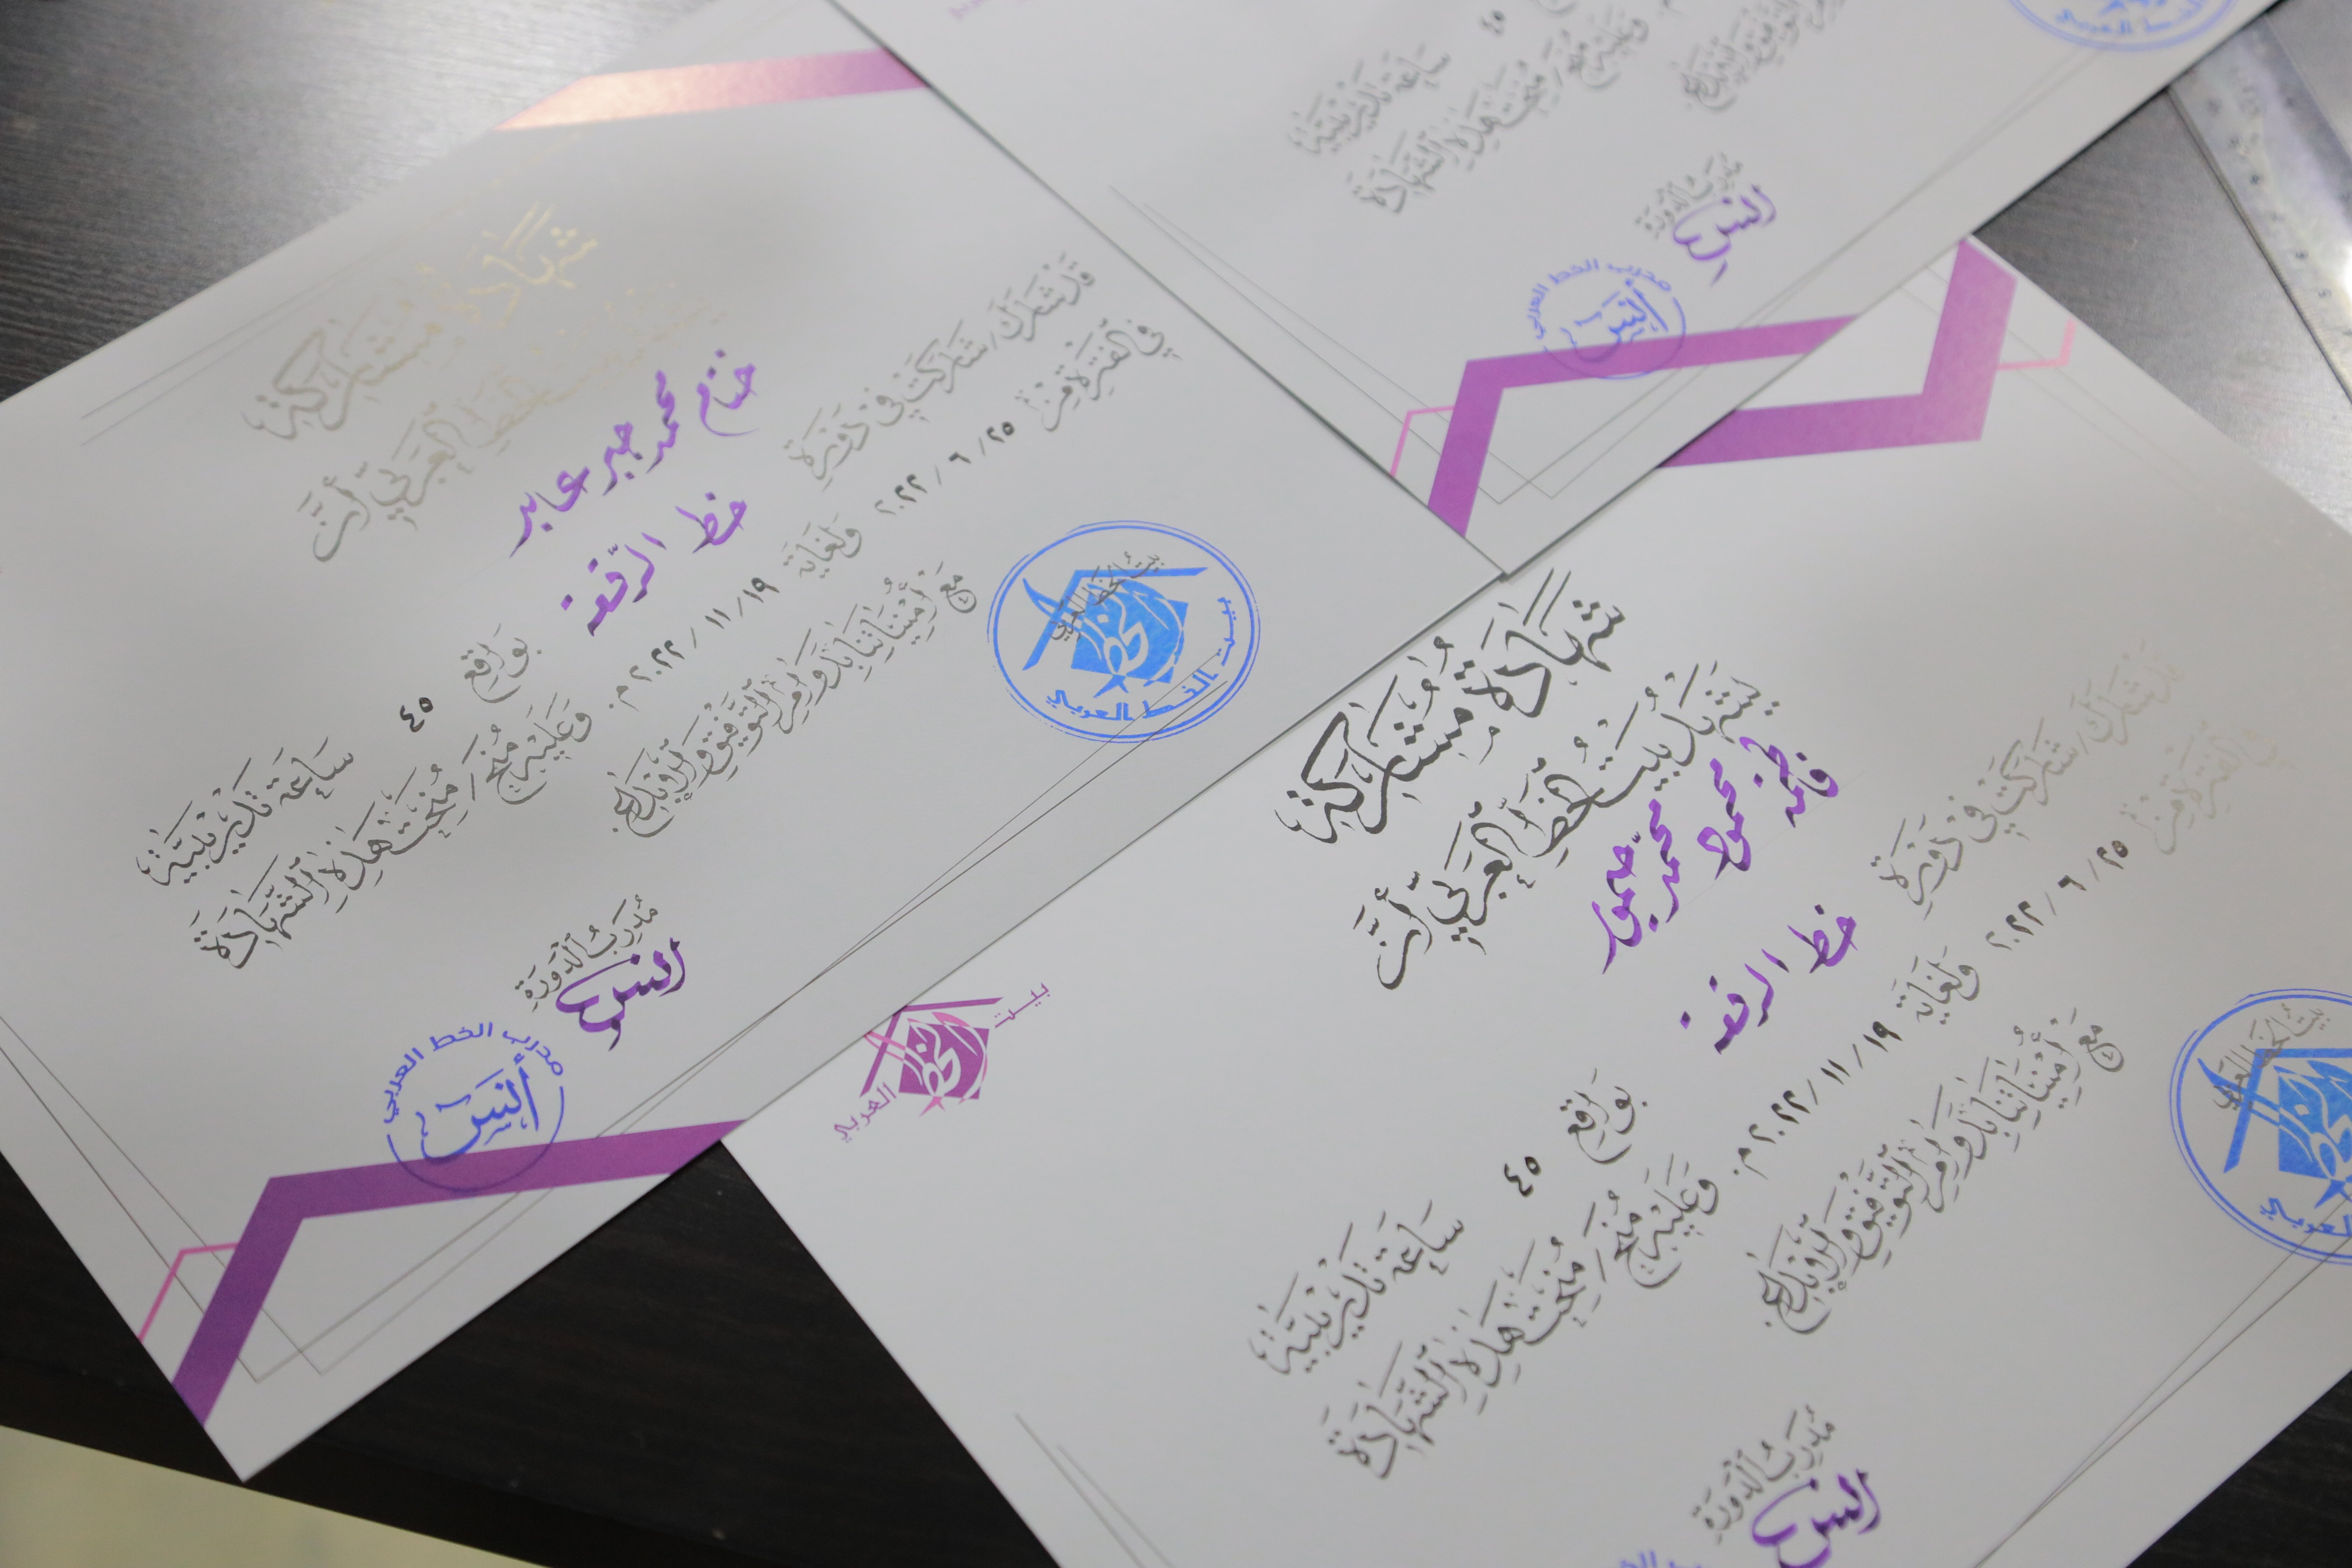 شهادة مشاركة
بيت الخط العربي أنَّ
ختام محمد جبر عابد
قد شارك / شاركت في دورة
خط الرقعة
في الفترة من ٢٠٢٢/٦/٢٥ ولغاية ٢٠٢٢/١١/١٩م.
بواقع ٤٥ ساعة تدريبية
وعليه منح / منحت هذه الشهادة
مع أمنياتنا بدوام التوفيق والإبداع
مدرب الدورة
أنس
مدرب الخط العربي
أنس
بيت الخط العربي
الخط
بيت الخط العربي
ساعة تدريبية
٤٥
وعليه منح / منحت هذه الشهادة
مدرب الدورة
أنس
مدرب الخط العربي
أنس
الخط العربي
بيت الخط العربي
شهادة مشاركة
يشهد بيت الخط العربي أنَّ
فاطمة محمود محمد حمود
قد شارك / شاركت في دورة
خط الرقعة
في الفترة من ٢٠٢٢/٦/٢٥ ولغاية ٢٠٢٢/١١/١٩م.
بواقع ٤٥ ساعة تدريبية
وعليه منح / منحت هذه الشهادة
مع أمنياتنا بدوام التوفيق والإبداع
بيت الخط العربي
الخط
العربي
مدرب الدورة
أنس